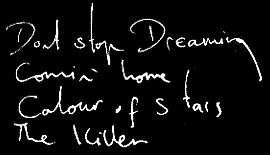 Dont stop Dreaming
Comin' home
Colour of Stars
The Killer